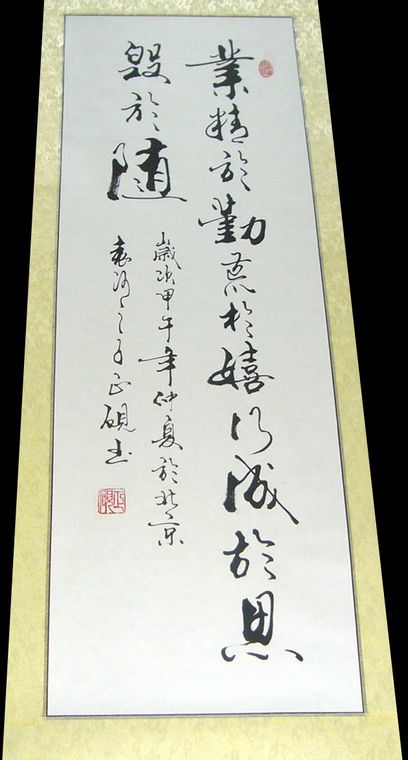 業精於勤荒於嬉行成於思
毀於随
歲次甲午年仲夏於北京
袁河之子正硯书